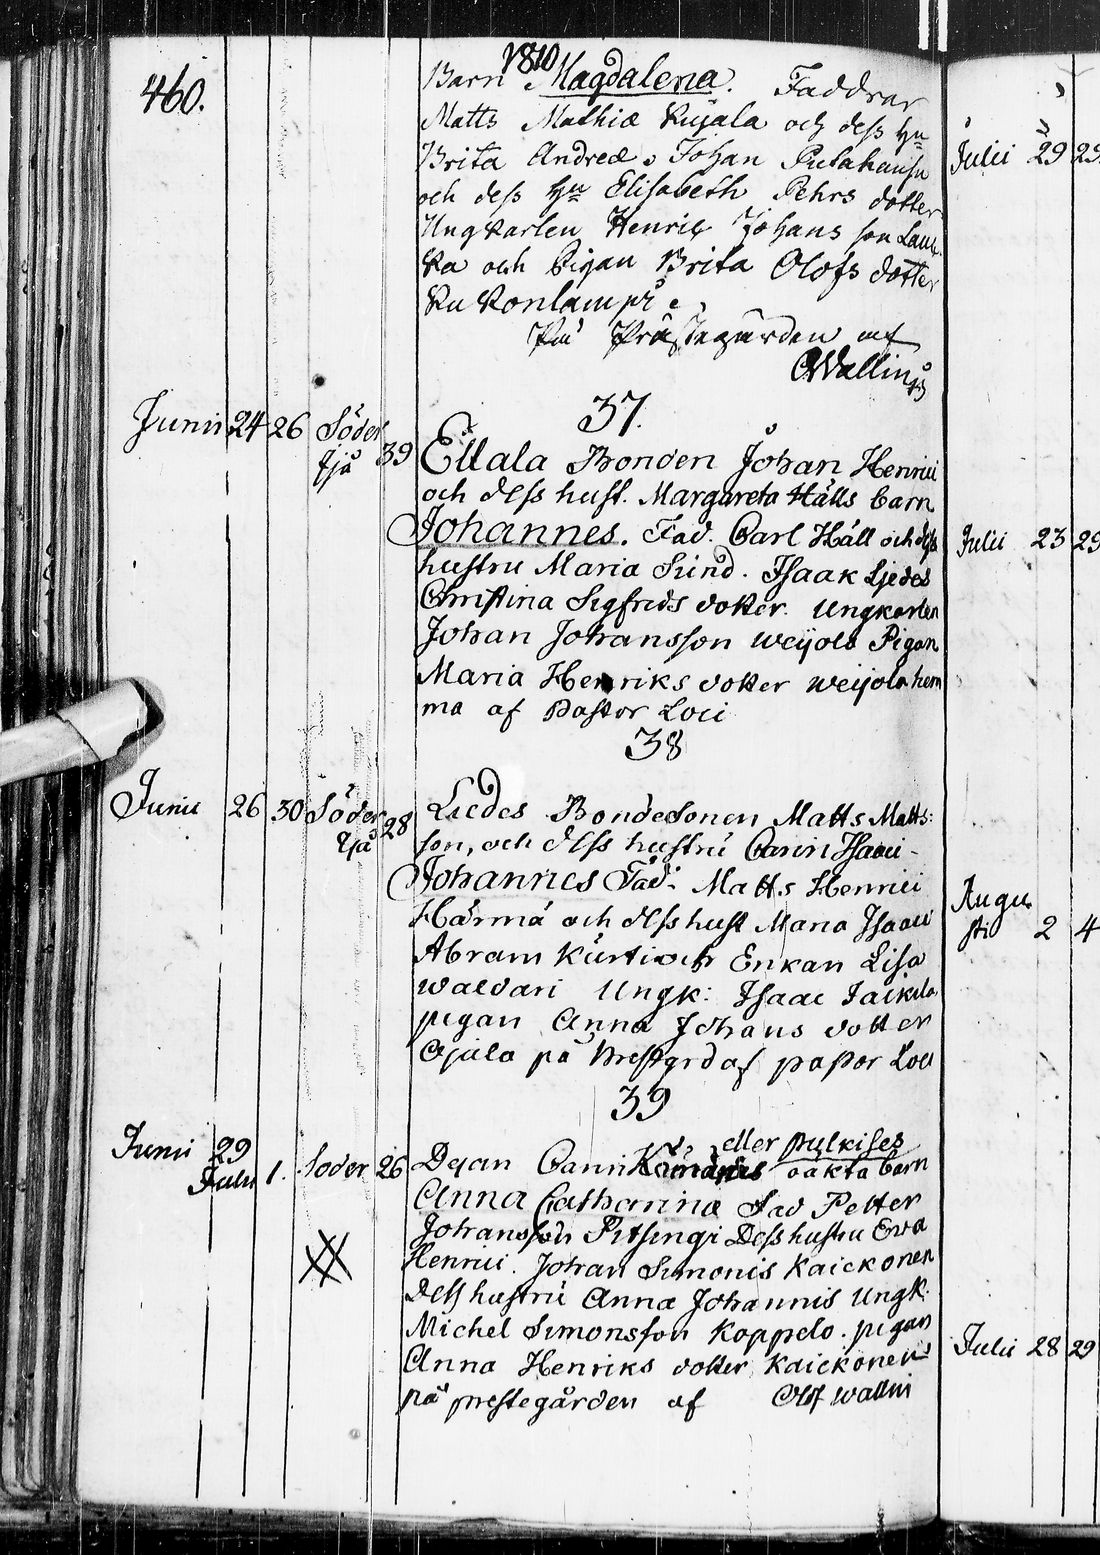 460.
1810
Barn Magdalena. Faddrar
Matts Mathiæ Kujala och dess Hu
Brita Andreæ, Johan
och dess Hu Elisabeth Pehrs dotter
Ungkarlen Henric Johans son Lauc
ka och Pigan Brita Olofs dotter
Kukonlampi.
På Prästegården af
OWallin
37.
Junii 24 26 Söder 39 Ellala Bonden Johan Henrici
och dess hust. Margareta Hälls barn
Johannes. Fad. Carl Häll och dess
hustru Maria Sund. Isaak Ljedes
Christina Sigfreds dotter. Ungkarlen
Johan Johansson Weijola Pigan
Maria Henriks dotter Weijola hem
ma af Pastor Loci
38
Junii 26 30 Söder 28 Liedes Bondesonen Matts Matts:
son, och dess hustru Carin Isaaci
Johannes Fad: Matts Henrici
Härmä och dess hust Maria Isaaci
Abram Kurti och Enkan Lisa
Waldari Ungk: Isaac
pigan Anna Johans dotter
Ojala på Prestgrd af pastor Loci
39
eller pulkises
Junii 29
Julii 1. Söder 26 Dejan Carin oäkta barn
Anna Catharina Fad Petter
Johansson Pitsingi Dess hustru Eva
Henrici. Johan Simonis Kaickonen
Dess hustru Anna Johannis Ungk.
Michel Simonsson Koppelo. pigan
Anna Henriks dotter Kaickonen
på prestegården af Olof Wallin
Julii 29 29
Julii 23 29
Augu
sti 2 4
Julii 28 29